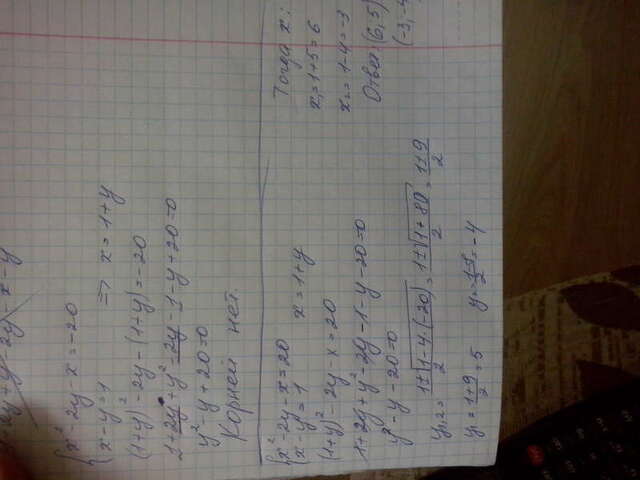 1+2y+y²-2y-x-y
{x²-2y-x=-20
{x-y=1 => x=1+y
(1+y)²-2y-(1+y)=-20
1+2y+y²-2y-1-y+20=0
y²-y+20=0
Корней нет.
{x²-2y-x=20
{x-y=1 x=1+y
(1+y)²-2y-x=20
1+2y+y²-2y-1-y-20=0
y²-y-20=0
y₁,₂=(1±√(1-4(-20)))/2=(1±√(1+80))/2=(1±9)/2
y₁=(1+9)/2=5 y₂=(1-9)/2=-4
Тогда x:
x₁=1+5=6
x₂=1-4=-3
Ответ: (6;5)
(-3,-4